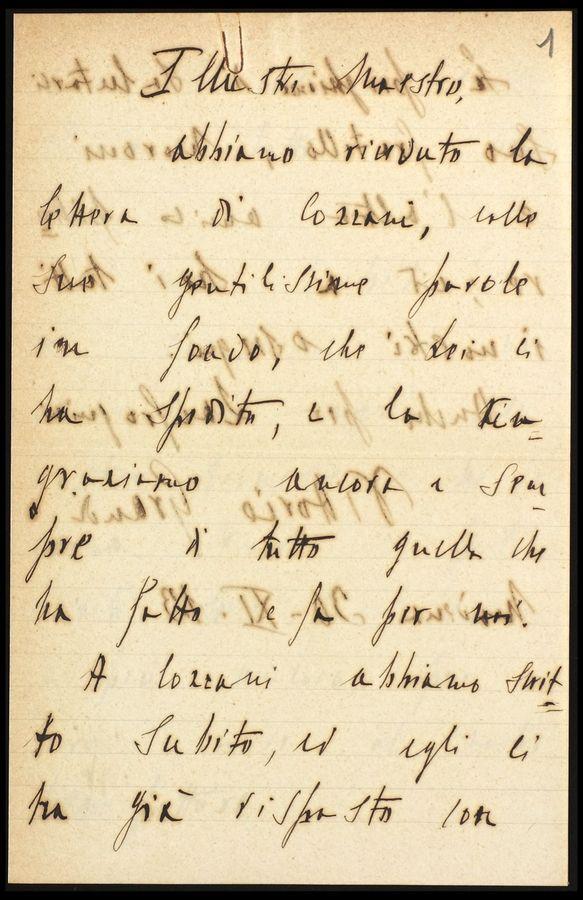 1
Illustre Maestro,
abbiamo ricevuto la
lettera di Cozzani, colle
Sue gentilissime parole
in fondo, che Lei ci
ha spedito, e la rin=
graziamo ancora e sem=
pre di tutto quello che
ha fatto e fa per noi.
A Cozzani abbiamo scrit=
to subito, ed egli ci
ha già risposto con